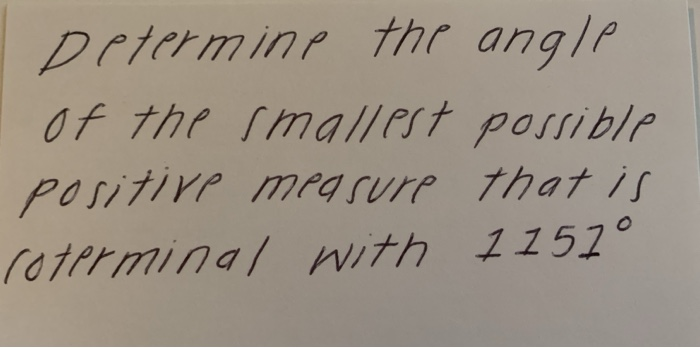 Determine the angle
of the smallest possible
positive measure that is
coterminal with 1151°